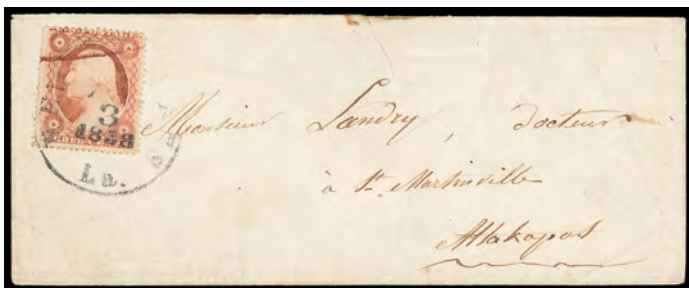 3
1858
La.
Monsieur Landry, docteur
à St. Martinville
Attakapas